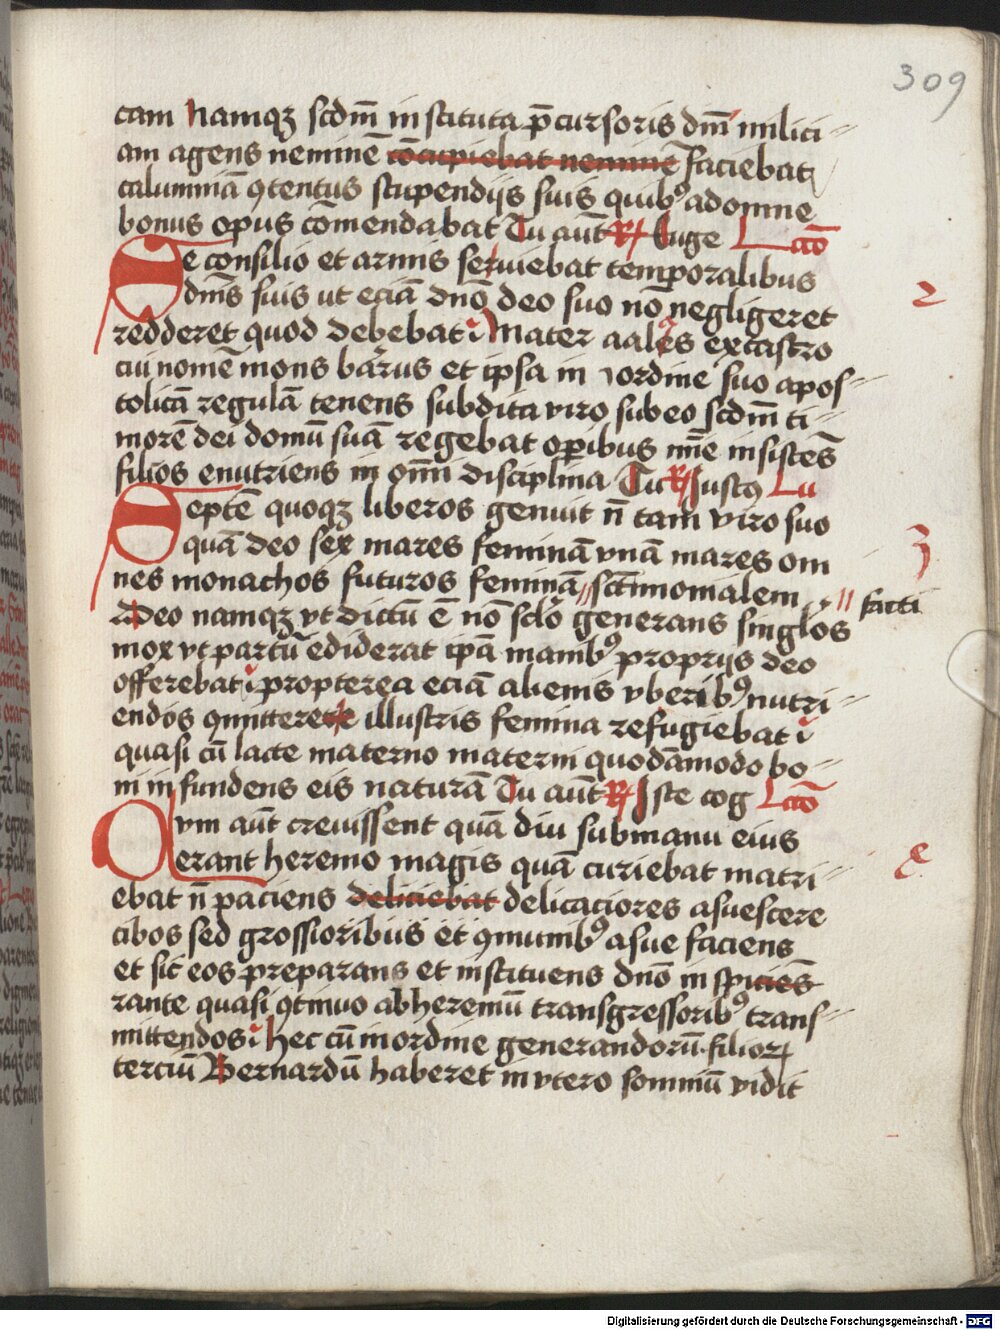 309
cam Namqꝫ scdm̄ instituta p̄cursoris dm̄ milici
am agens neminē cōcupiebat nemine faciebat
calumniā ꝯtentus stupendijs suis quibꝰ ad omne
bonus opus cōmendabat Tu aūt ℟ Euge Lcō
Te consilio et armis seruiebat temporalibus
dnīs suis ut eciā dnō deo suo nō negligeret
2
redderet quod debebat Mater aales ex castro
cui nomē mons barrus et ipsa in ordine suo apos
tolicā regulā tenens subdita viro sub eo scdm̄ ti
morē dei domū suā regebat oꝑibus mīe insistēs
filios enutriens in om̄i disciplina Tu ℟ Iustꝰ Lu
Septē quoqꝫ liberos genuit n̄ tam viro suo
quā deo sex mares feminā vnā mares om
3
nes monachos futuros feminā sctīmonialem
facti
Adeo namqꝫ vt dictū ē nō sclō generans singlos
mox vt partū ediderat ipā manibꝰ proprijs deo
offerebat propterea eciā alienis vberibꝰ nutri
endos ꝯmittere illustris femina refugiebat
quasi cū lacte materno materni quodāmodo bo
ni infundens eis naturā Tu aūt ℟ Iste cog Lcō
Cum aūt creuissent quā diu sub manu eius
erant heremo magis quā curie nutri
ebat n̄ paciens deliciebat delicaciores asuescere
cibos sed grossioribus et ꝯmunibꝰ asue faciens
et sic eos preparans et instituens dnō inspi
rante quasi ꝯtinuo ab heremū transgressoribꝰ trans
mittendos Hec cū in ordine generandorū filioꝝ
terciū Bernardū haberet in vtero somniū vidit
Digitalisierung gefördert durch die Deutsche Forschungsgemeinschaft - DFG